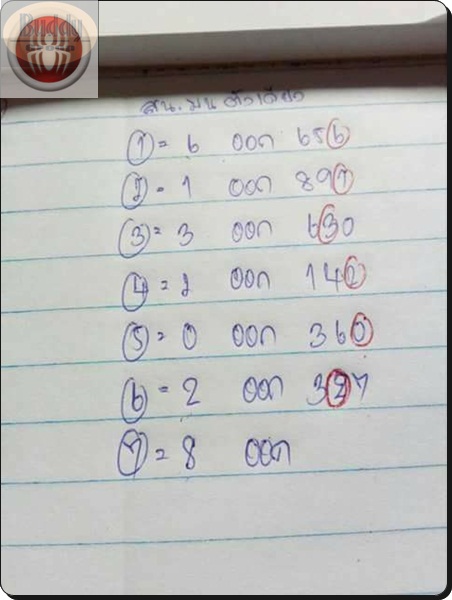 Buddy
สน. บน ตัวเดียว
① = 6 ออก 656
② = 1 ออก 891
③ = 3 ออก 630
④ = 2 ออก 142
⑤ = 0 ออก 360
⑥ = 2 ออก 327
⑦ = 8 ออก